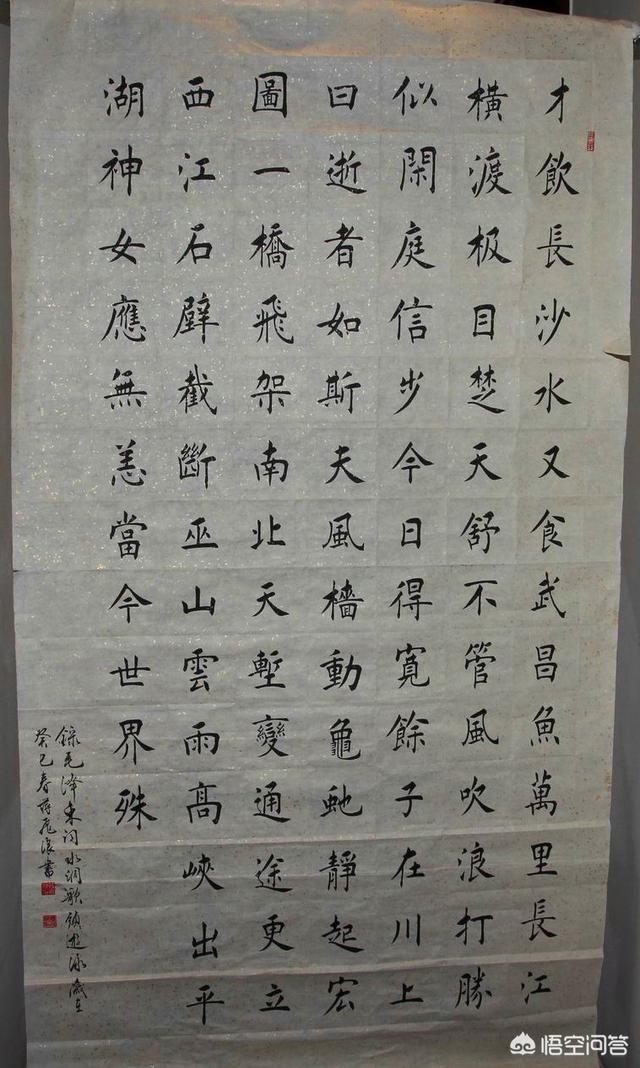 才飲長沙水又食武昌魚萬里長江
橫渡极目楚天舒不管風吹浪打勝
似閑庭信步今日得寬餘子在川上
曰逝者如斯夫風檣動龜虵靜起宏
圖一橋飛架南北天塹變通途更立
西江石壁截斷巫山雲雨高峽出平
湖神女應無恙當今世界殊
錄毛泽东词水调歌頭遊泳歲在
癸巳春書
悟空问答